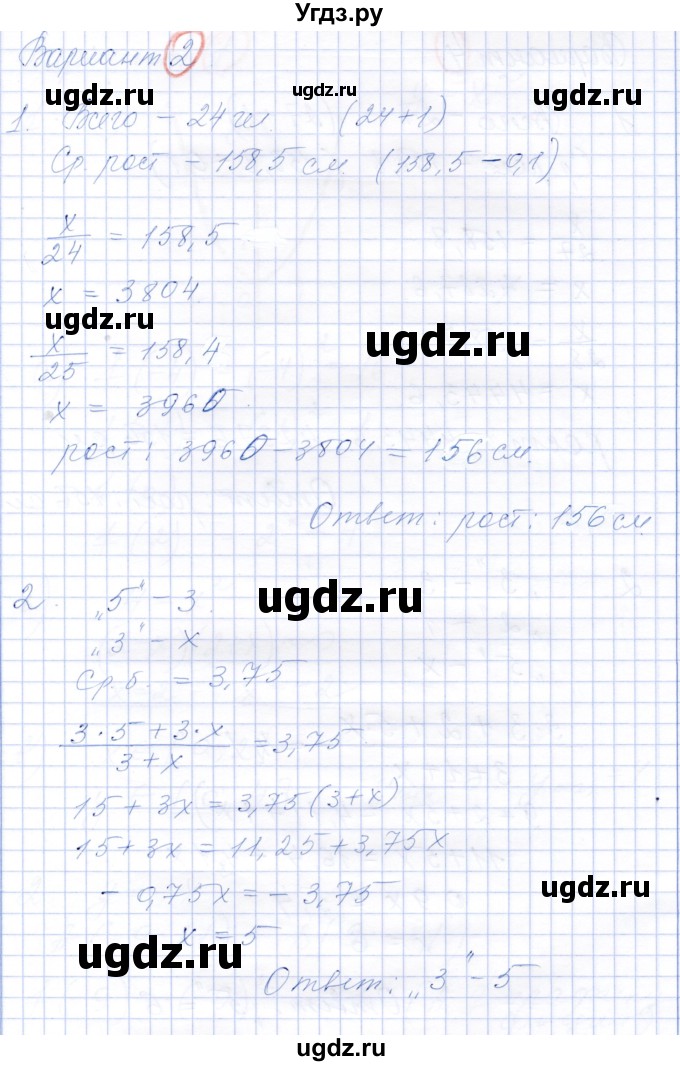 Угдз.ру
Вариант 2
ugdz.ru ugdz.ru ugdz.ru
1. Всего – 24 чел. (24+1)
Ср. рост – 158,5 см. (158,5 – 0,1)
x/24 = 158,5
x = 3804
ugdz.ru ugdz.ru
x/25 = 158,4
x = 3960.
рост: 3960 – 3804 = 156 см.
Ответ: рост: 156 см
ugdz.ru
2. „5“ – 3.
„3“ – x
Ср. б. = 3,75
(3·5 + 3·x)/(3 + x) = 3,75
15 + 3x = 3,75(3+x)
15 + 3x = 11,25 + 3,75x
– 0,75x = – 3,75
ugdz.ru
x = 5
ugdz.ru
Ответ: „3“ – 5
ugdz.ru